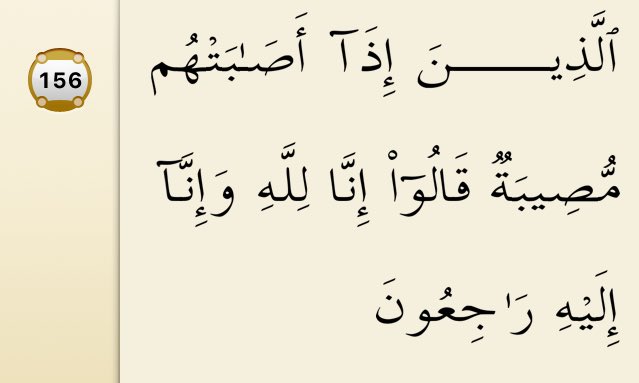 156
ٱلَّذِيـــــــنَ إِذَآ أَصَـٰبَتْهُم
مُّصِيبَةٌۭ قَالُوٓا۟ إِنَّا لِلَّهِ وَإِنَّآ
إِلَيْهِ رَٰجِعُونَ